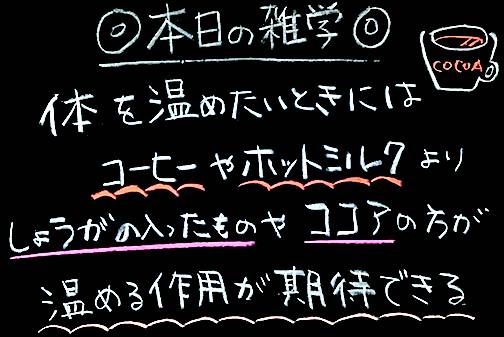 ◎本日の雑学◎
COCOA
体を温めたいときには
コーヒーやホットミルクより
しょうがの入ったものやココアの方が
温める作用が期待できる